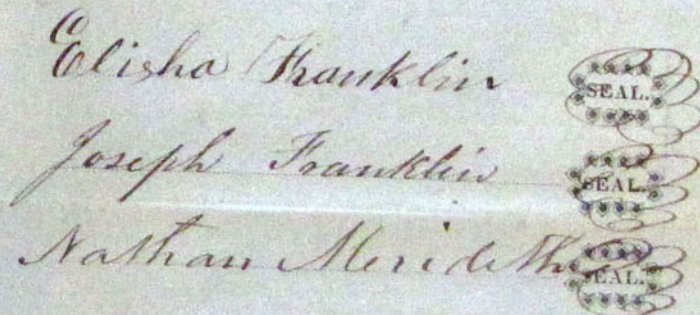 Elisha Franklin SEAL.
Joseph Franklin SEAL.
Nathan Merideth SEAL.